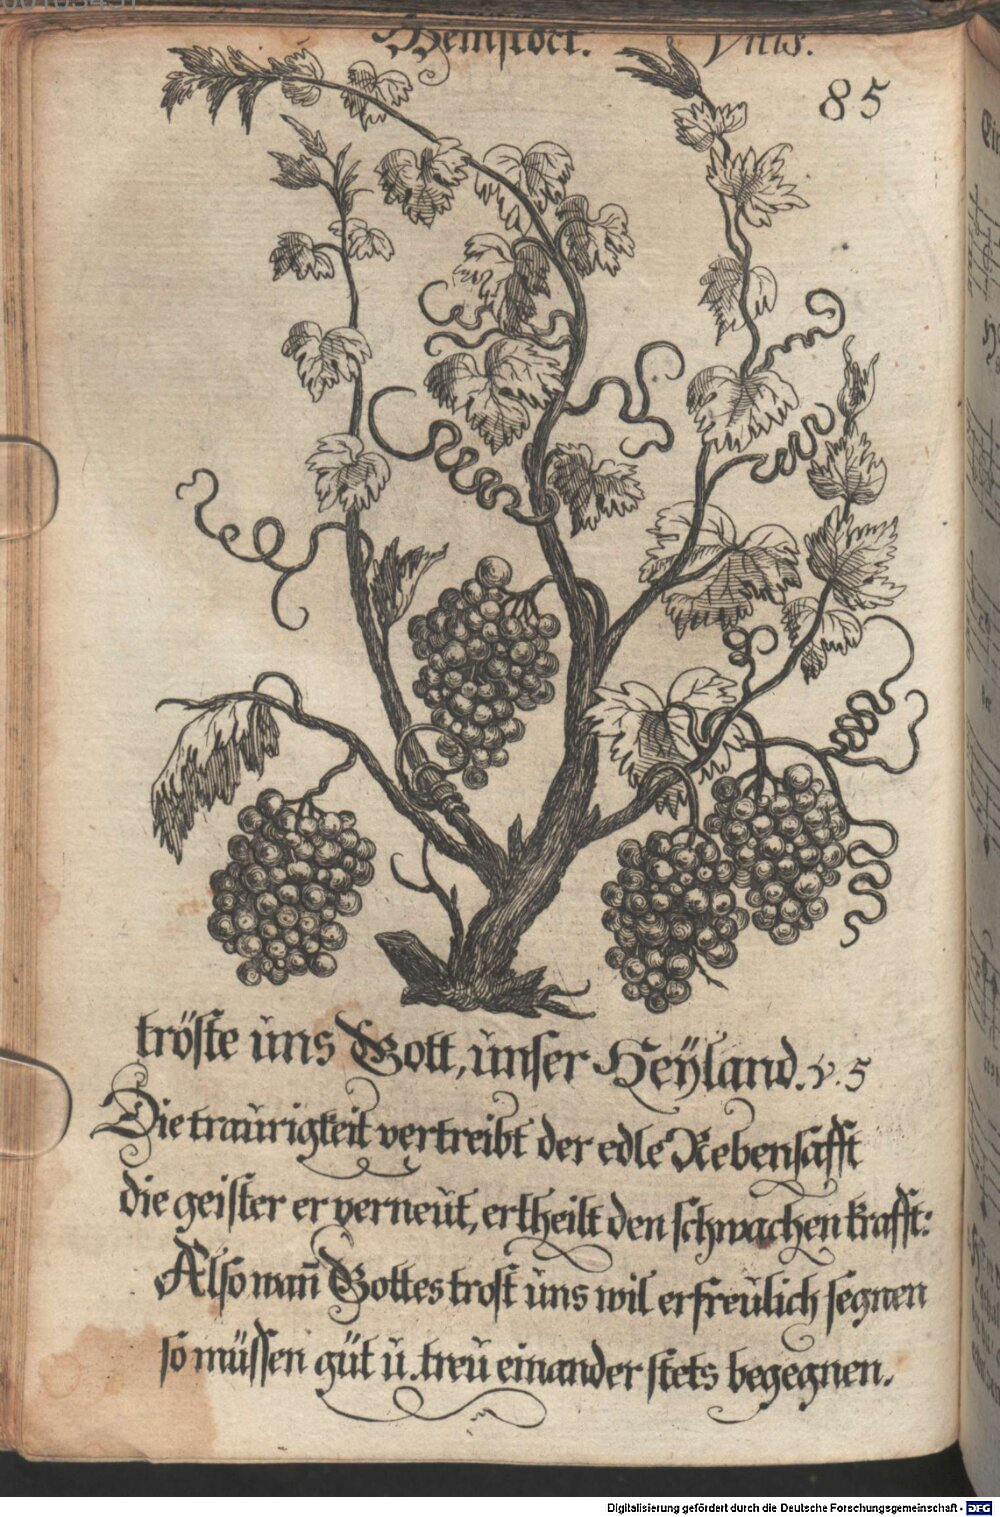 Weinstock. Vitis.
85
tröste ùns Gott, ùnser Heÿland. v. 5
Die traùrigkeit vertreibt der edle Rebensafft
die geister er verneùt, ertheilt den schwachen krafft:
Also wañ Gottes trost ùns wil erfreùlich segnen
so müssen güt ù. treù einander stets begegnen.
Digitalisierung gefördert durch die Deutsche Forschungsgemeinschaft - DFG